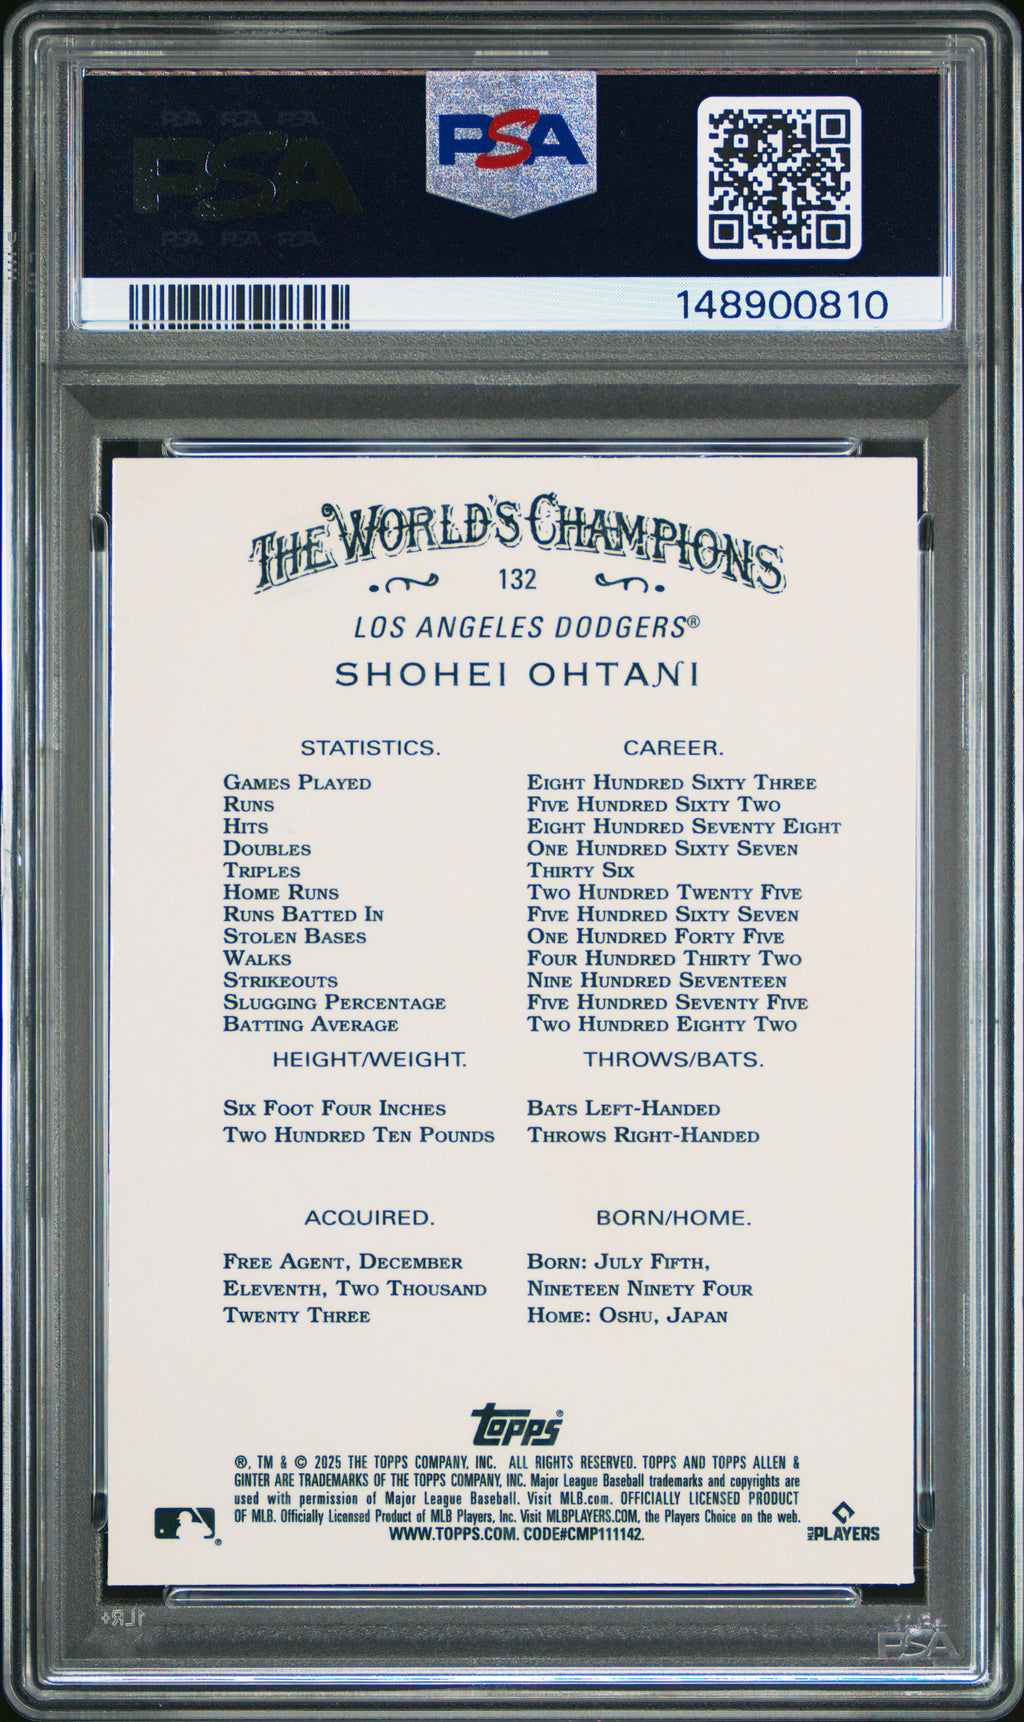 PSA PSA PSA
PSA
PSA PSA PSA
PSA
148900810
THE WORLD'S CHAMPIONS
132
LOS ANGELES DODGERS®
SHOHEI OHTANI
STATISTICS. CAREER.
GAMES PLAYED EIGHT HUNDRED SIXTY THREE
RUNS FIVE HUNDRED SIXTY TWO
HITS EIGHT HUNDRED SEVENTY EIGHT
DOUBLES ONE HUNDRED SIXTY SEVEN
TRIPLES THIRTY SIX
HOME RUNS TWO HUNDRED TWENTY FIVE
RUNS BATTED IN FIVE HUNDRED SIXTY SEVEN
STOLEN BASES ONE HUNDRED FORTY FIVE
WALKS FOUR HUNDRED THIRTY TWO
STRIKEOUTS NINE HUNDRED SEVENTEEN
SLUGGING PERCENTAGE FIVE HUNDRED SEVENTY FIVE
BATTING AVERAGE TWO HUNDRED EIGHTY TWO
HEIGHT/WEIGHT. THROWS/BATS.
SIX FOOT FOUR INCHES BATS LEFT-HANDED
TWO HUNDRED TEN POUNDS THROWS RIGHT-HANDED
ACQUIRED. BORN/HOME.
FREE AGENT, DECEMBER BORN: JULY FIFTH,
ELEVENTH, TWO THOUSAND NINETEEN NINETY FOUR
TWENTY THREE HOME: OSHU, JAPAN
Topps®
®, TM & © 2025 THE TOPPS COMPANY, INC. ALL RIGHTS RESERVED. TOPPS AND TOPPS ALLEN &
GINTER ARE TRADEMARKS OF THE TOPPS COMPANY, INC. Major League Baseball trademarks and copyrights are
used with permission of Major League Baseball. Visit MLB.com. OFFICIALLY LICENSED PRODUCT
OF MLB. Officially Licensed Product of MLB Players, Inc. Visit MLBPLAYERS.COM, the Players Choice on the web.
WWW.TOPPS.COM. CODE#CMP111142.
MLB PLAYERS
1LR+
PSA